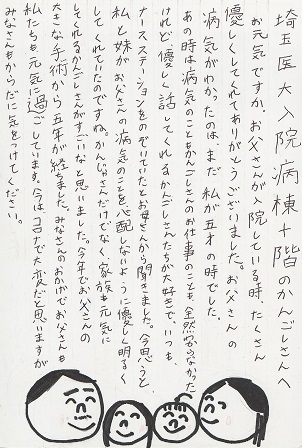 埼玉医大入院病棟十階のかんごしさんへ
お元気ですか。お父さんが入院している時、たくさん
優しくしてくれてありがとうございました。お父さんの
病気がわかったのは、まだ私が五才の時でした。
あの時は病気のこともかんごしさんのお仕事のことも全然分らなかった
けれど優しく話してくれるかんごしさんたちが大好きで、いつも、
ナースステーションをのぞいていたとお母さんから聞きました。今思うと、
私と妹がお父さんの病気のことを心配しないように優しく明るく
してくれていたのですね。かんじゃさんだけでなく家族も元気に
してくれるかんごしさんがすごいなと思いました。今年でお父さんの
大きな手術から五年が経ちました。みなさんのおかげでお父さんも
私たちも元気に過ごしています。今はコロナで大変だと思いますが
みなさんもからだに気をつけてください。